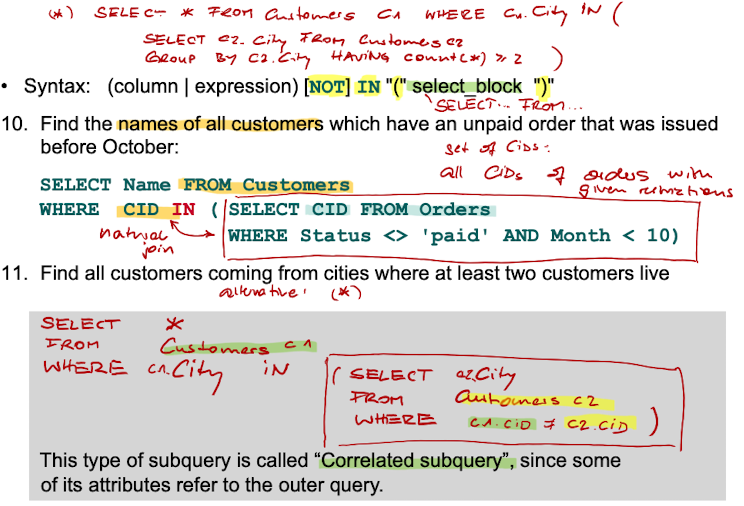 (*) SELECT * FROM Customers C1 WHERE C1.City IN (
SELECT C2.City FROM Customers C2
GROUP BY C2.City HAVING count(*) ≥ 2 )
• Syntax: (column | expression) [NOT] IN "(" select_block ")"
SELECT... FROM...
10. Find the names of all customers which have an unpaid order that was issued
before October:
set of CIDs:
all CIDs of orders with
given restrictions
SELECT Name FROM Customers
WHERE CID IN ( SELECT CID FROM Orders
WHERE Status <> 'paid' AND Month < 10)
natural
join
11. Find all customers coming from cities where at least two customers live
alternative: (*)
SELECT *
FROM Customers C1
WHERE C1.City IN
( SELECT C2.City
FROM Customers C2
WHERE C1.CID ≠ C2.CID )
This type of subquery is called “Correlated subquery”, since some
of its attributes refer to the outer query.